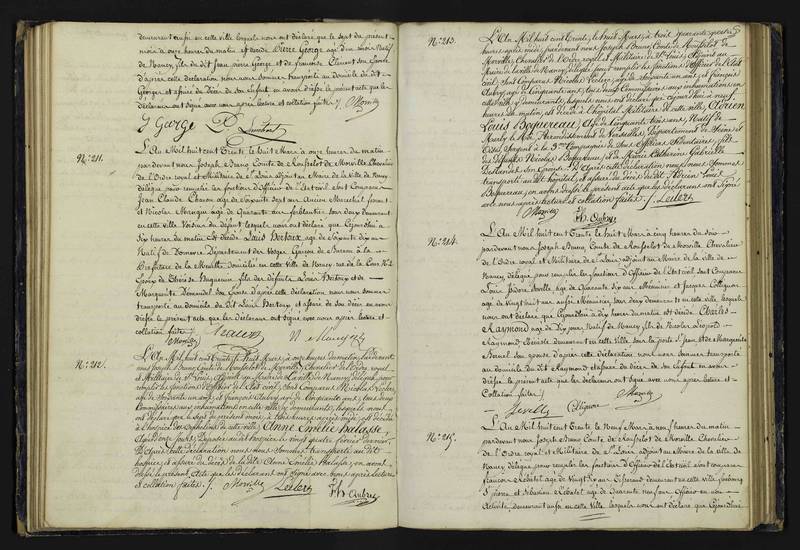 demeurant aussi en cette ville lesquels nous ont déclaré que le sept du présent
mois à onze heures du matin est décédé Pierre George agé d'un mois Natif
de Nancy, fils du dit Jean pierre George et de françoise Clement son Epouse
d'après cette déclaration nous nous sommes transporté au domicile du dit
George et assuré du Décès de son Enfant en avons dressé le présent acte que les
Déclarans ont signé avec nous après lecture et collation faites
J George
N.° 211.
L'An Mil huit cent Trente le huit Mars à onze heures du matin
pardevant nous Joseph Bruno Comte de Rouselot de Morville Chevalier
de l'Ordre royal et Militaire de St Louis adjoint au Maire de la ville de Nancy
délégué pour remplir les fonctions d'officier de l'état civil sont Comparus
Jean Claude Chanon agé de Soixante Sept ans Ancien Marechal ferrant
et Nicolas agé de Quarante ans ferblantier tous deux demeurant
en cette ville Voisins du défunt lesquels nous ont déclaré que Cejourdhui à
Six heures du matin est décédé Louis Bertaux agé de Soixante dix ans
Natif de Département des Vosges Garçon de Bureau à la
Préfecture de la Meurthe domicilié en cette Ville de Nancy rue de la Cour N.° 2
Epoux de Thérèse fils des défunts Louis Bertaux et de
Marguerite son Epouse d'après cette déclaration nous nous sommes
transporté au domicile du dit Louis Bertaux et assuré de son décès en avons
dressé le présent acte que les déclarans ont signé avec nous après lecture et
collation faites
N.° 212.
L'An Mil huit cent Trente le huit Mars à onze heures du matin Pardevant
nous Joseph Bruno Comte de Rouselot de Morville Chevalier de l'Ordre royal
et Militaire de St Louis, Adjoint au Maire de la ville de Nancy délégué pour
remplir les fonctions d'Officier de l'Etat civil, sont Comparus Nicolas Leclerc
agé de Soixante un ans, et François Aubry agé de Cinquante ans, tous deux
Commissaires aux inhumations en cette ville y demeurants, lesquels nous
ont déclaré que le Sept du présent mois, à trois heures après midi, est décédée
à l'hospice des orphelines de cette ville, Anne Emélie Halasse,
D'après cette déclaration nous nous Sommes transporté au dit
hospice, et assuré du décès de la dite Anne Emélie Halasse, en avons
dressé le présent acte que les déclarans ont Signé avec nous après lecture
& collation faites. Leclerc
fs Aubry
N.° 213.
L'An Mil huit cent Trente, le huit Mars, à trois
heures après midi, pardevant nous Joseph Bruno, Comte de Rouselot de
Morville, Chevalier de l'Ordre royal & Militaire de St Louis, Adjoint au
Maire de la ville de Nancy, délégué pour remplir les fonctions d'Officier de l'Etat
civil, sont Comparus Nicolas Leclerc agé de Soixante un ans, et François
Aubry agé de Cinquante ans, tous deux Commissaires aux inhumations en
cette ville, y demeurants, lesquels nous ont déclaré que Cejourdhui à neuf
heures du matin, est décédé à l'hôpital Militaire de cette ville, Adrien
Louis Boquereau, agé de Cinquante trois ans, Natif de
Marly le Arrondissement de Versailles, Département de Seine et
Oise, Sergent à la 3.me Compagnie de Sous Officiers Sédentaires, fils
des défunts Nicolas Boquereau et de Marie Catherine Gabrielle
son Epouse. D'Après cette déclaration nous nous Sommes
transporté au dit hôpital, et assuré du décès du dit Adrien Louis
Boquereau, en avons dressé le présent acte que les déclarans ont Signé
avec nous après lecture et collation faites. Leclerc
fs Aubry
N.° 214.
L'An Mil huit Cent Trente le huit Mars à cinq heures du Soir
pardevant nous Joseph Bruno, Comte de Rouselot de Morville Chevalier
de l'Ordre royal et Militaire de St Louis, adjoint au Maire de la ville de
Nancy délégué pour remplir les fonctions d'Officier de l'Etat civil, sont Comparus
Louis Isidore agé de Quarante Six ans Menuisier et Jacques Collignon
agé de Vingt huit ans aussi Menuisier, tous deux demeurans en cette ville, lesquels
nous ont déclaré que Cejourdhui à dix heures du matin est décédé Charles
Raymond agé de Dix jours Natif de Nancy fils de Nicolas Léopold
Raymond demeurant en cette ville près la porte St Jean et de Marguerite
son Epouse d'après cette déclaration nous nous sommes transporté
au domicile du dit Raymond et assuré du décès de son Enfant en avons
dressé le présent acte que les déclarans ont signé avec nous après lecture et
Collation faites
Collignon
N.° 215.
L'An Mil huit Cent Trente le Neuf Mars à neuf heures du matin
pardevant nous Joseph Bruno Comte de Rouselot de Morville Chevalier
de l'Ordre royal et Militaire de St Louis adjoint au Maire de la ville de
Nancy délégué pour remplir les fonctions d'officier de l'état civil sont comparus
François agé de Vingt Six ans demeurant en cette ville faubourg
St pierre et Sébastien agé de Quarante neuf ans Officier en non
Activité, demeurant aussi en cette ville lesquels nous ont déclaré que Cejourdhui